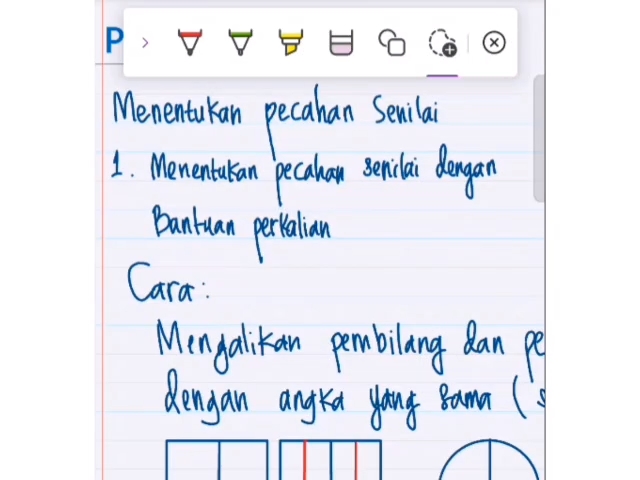 P
Menentukan pecahan Senilai
1. Menentukan pecahan senilai dengan
Bantuan perkalian
Cara:
Mengalikan pembilang dan pe
dengan angka yang sama (s